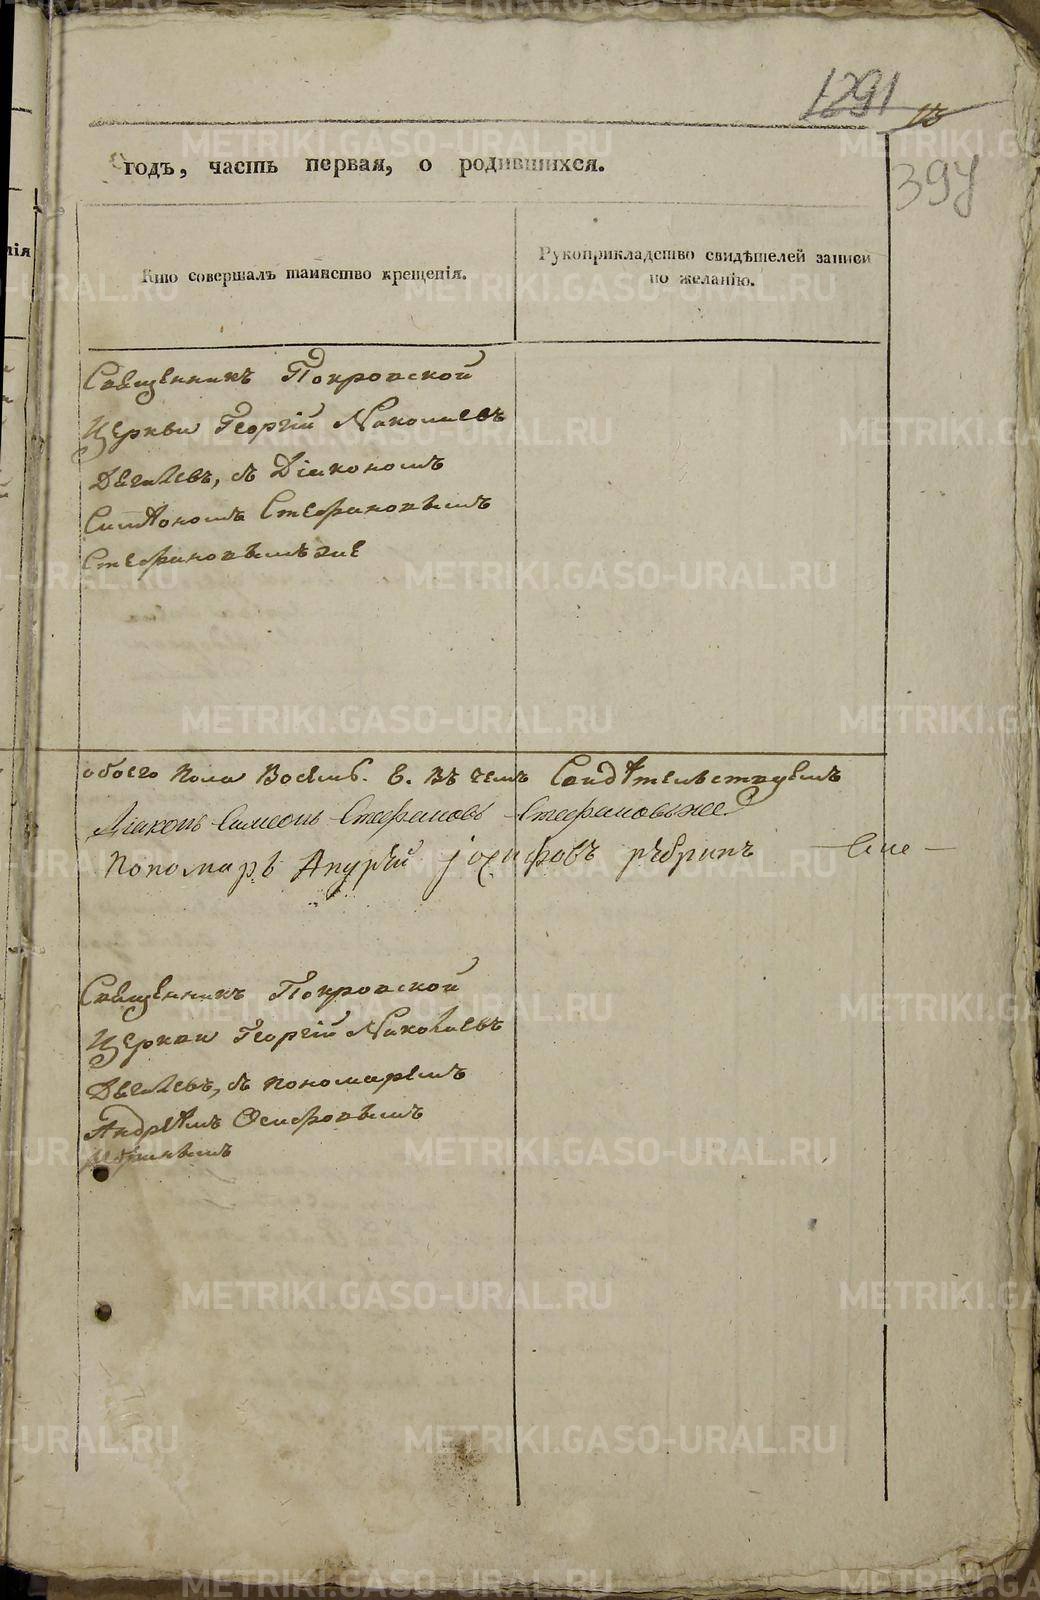 1291
13
397
годъ, часть первая, о родившихся.
Кто совершалъ таинство крещенія.
Рукоприкладство свидѣтелей записи
по желанію.
Священникъ Покровской
Церкви Георгій Николаевъ
съ Діакономъ
Симѣономъ Стефановымъ
Стефановымъ же
обоего пола Восемь. 8. Въ чемъ Свидѣтельствуемъ
Діаконъ Симеонъ Стефановъ Стефановъ же
Пономарь Андрей Іосифовъ Рѣбринъ
Священникъ Покровской
Церкви Георгій Николаевъ
съ пономаремъ
Андрѣемъ Осиповымъ
METRIKI.GASO-URAL.RU